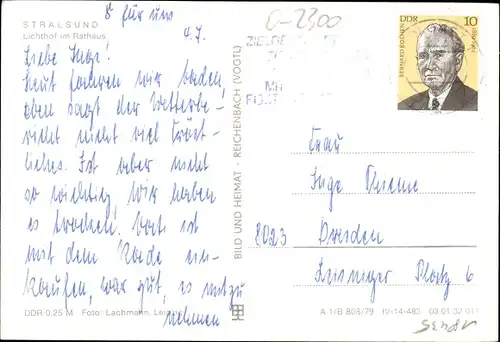 STRALSUND
Lichthof im Rathaus
8 für uns
4.7.
Liebe Inge!
Heut fahren wir baden,
eben sagt der Wetterbe-
richt nicht viel Tröst-
liches. Ist aber nicht
so wichtig, wir haben
es trocken. Vati ist
mit dem Rade ein-
kaufen, war gut, es mitzu
nehmen
DDR 0,25 M Foto: Lachmann, Leipzig
BILD UND HEIMAT · REICHENBACH (VOGTL)
0-2300
DDR 10
Frau
Inge Thieme
8023 Dresden
Platz 6
A 1/B 808/79 IV-14-483 03 01 32 011
18435